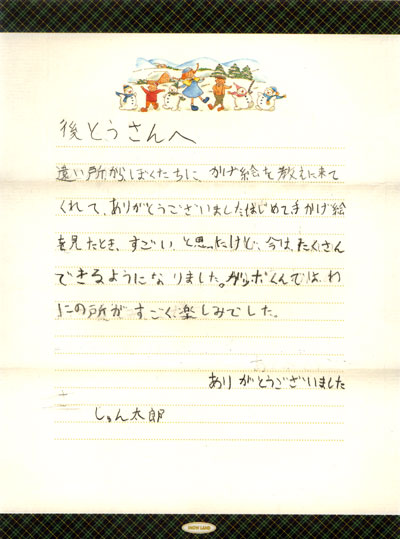 後とうさんへ
遠い所からぼくたちに、かげ絵を教えに来て
くれて、ありがとうございました。はじめて手かげ絵
を見たとき、すごい、と思ったけど、今は、たくさん
できるようになりました。ガッポくんでは、わ
にの所が、すごく楽しみでした。
ありがとうございました
じゅん太郎
SNOW LAND